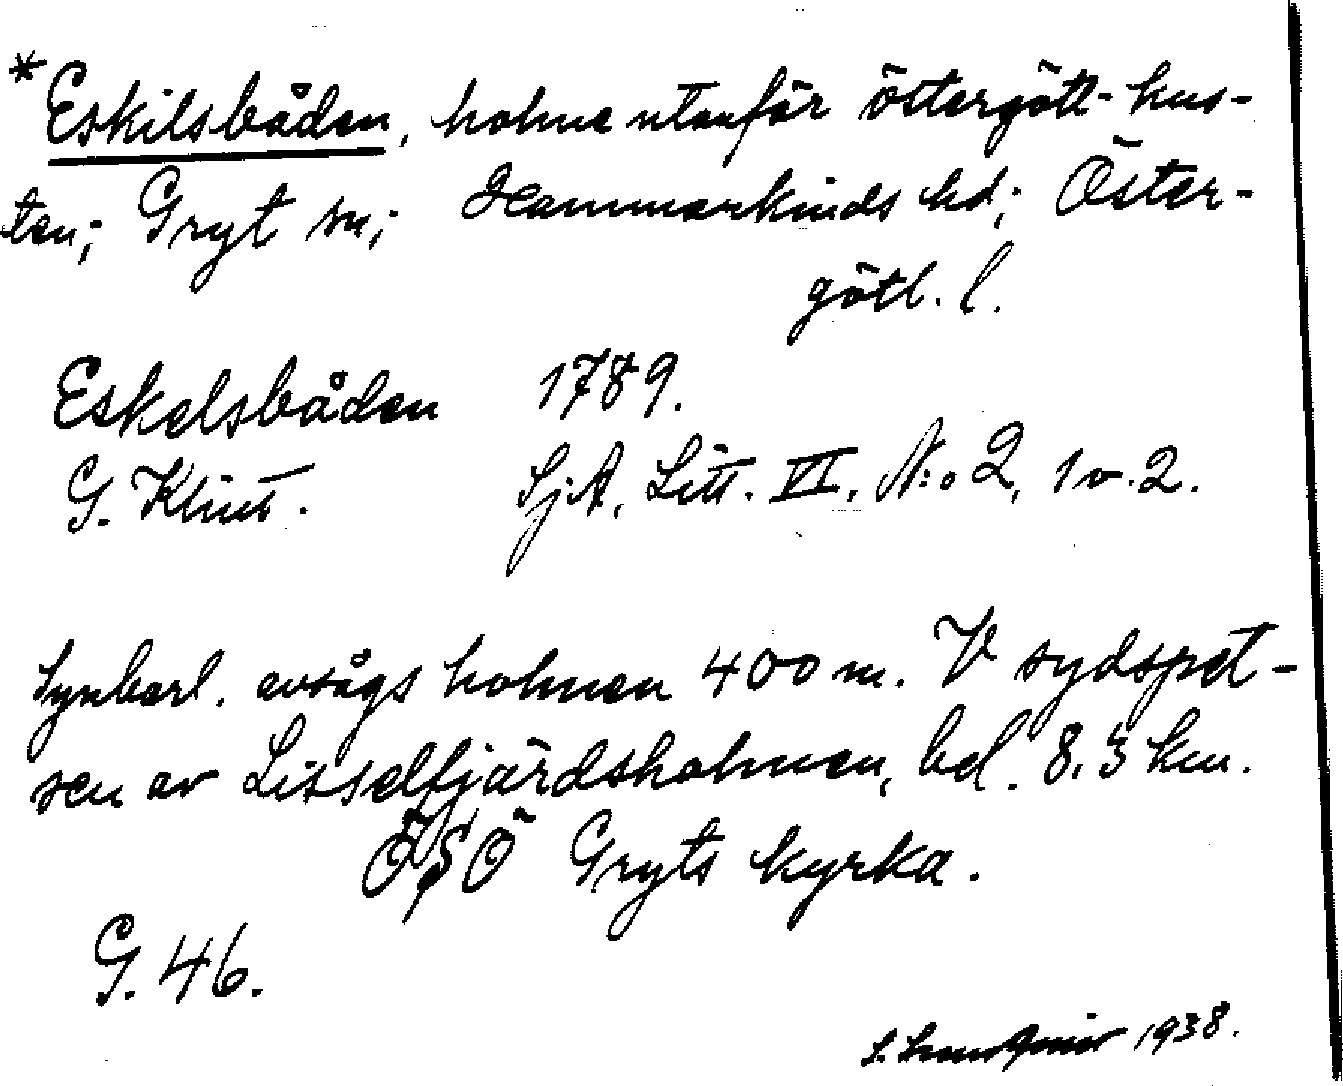 *Eskilsbåden, holme utanför östergötl- kus-
ten; Gryt sn; Hammarkinds hd; Öster-
götl. l.
Eskelsbåden 1789.
G. Klint. SjA, Litt. VI, N:o 2, 1 o. 2.
Synbarl. avsågs holmen 400 m. V sydspet-
sen av Lisselfjärdsholmen, bel. 8,3 km.
ÖSÖ Gryts kyrka.
G. 46.
1938.